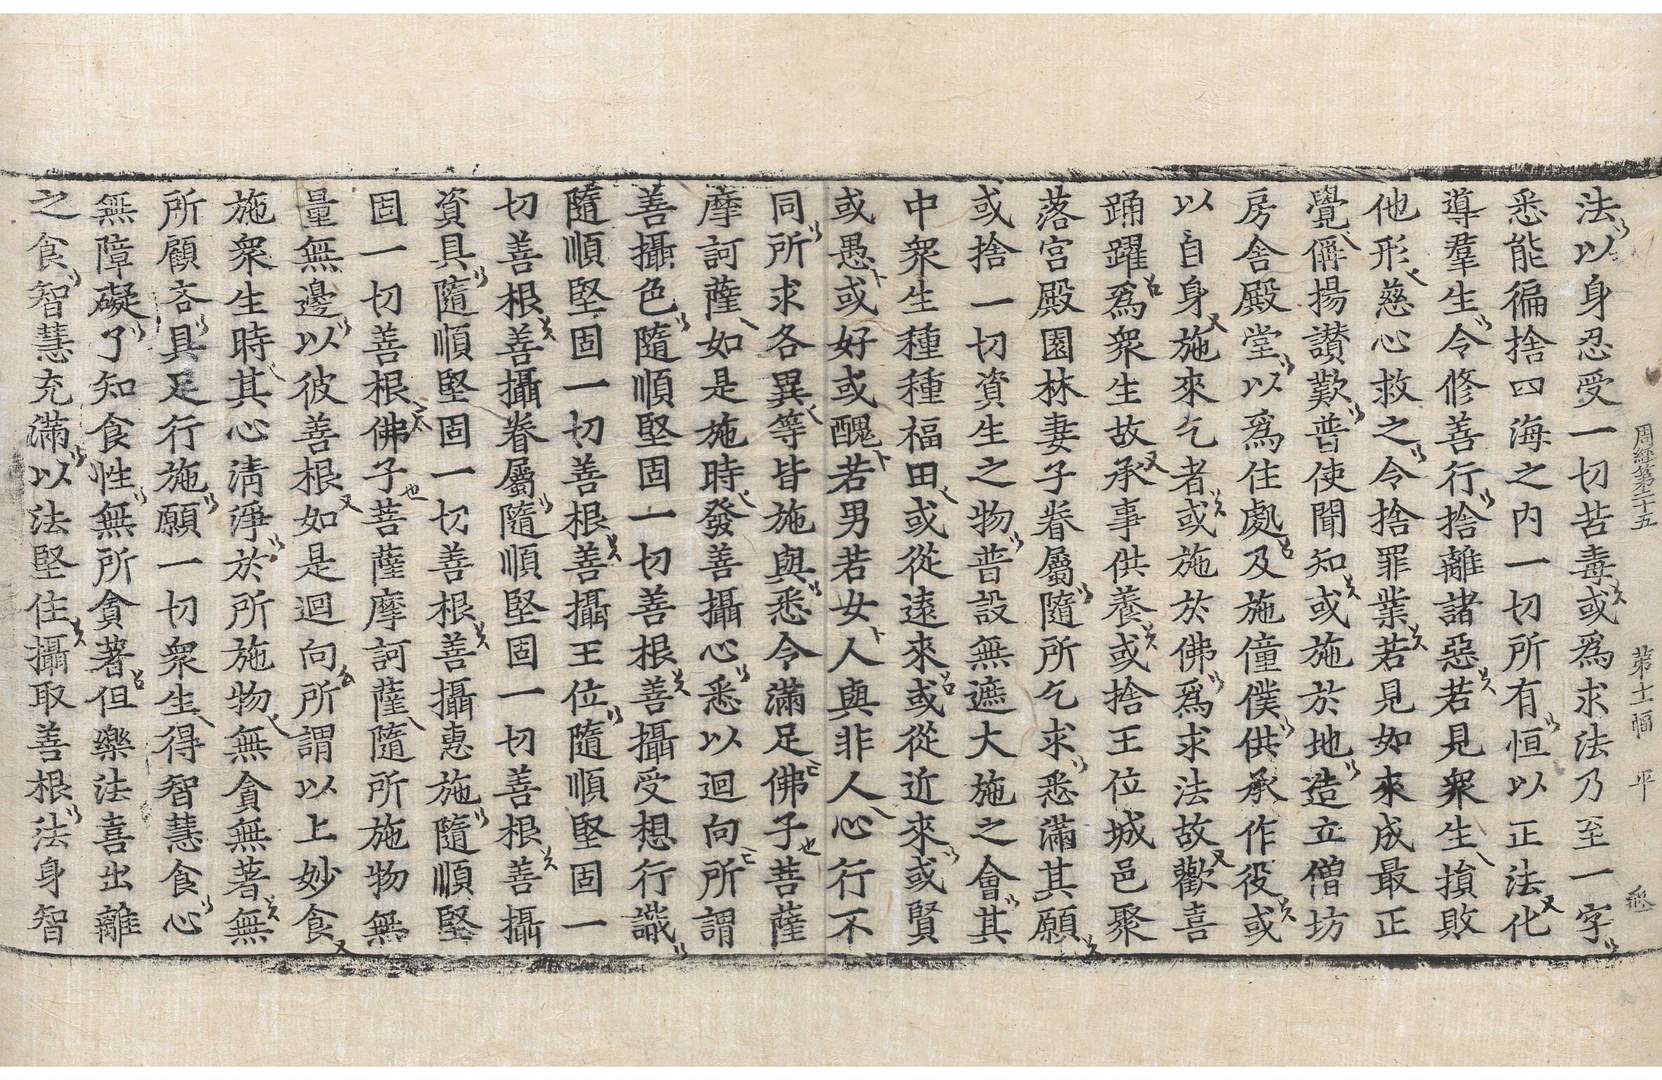 周經第二十五 第十二幅 平
法以身忍受一切苦毒或爲求法乃至一字
悉能徧捨四海之内一切所有恒以正法化
導羣生令修善行捨離諸惡若見衆生損敗
他形慈心救之令捨罪業若見如來成最正
覺偁揚讃歎普使聞知或施於地造立僧坊
房舍殿堂以爲住處及施僮僕供承作役或
以自身施來乞者或施於佛爲求法故歡喜
踊躍爲衆生故承事供養或捨王位城邑聚
落宮殿園林妻子眷屬隨所乞求悉滿其願
或捨一切資生之物普設無遮大施之會其
中衆生種種福田或從遠來或從近來或賢
或愚或好或醜若男若女人與非人心行不
同所求各異等皆施與悉令滿足佛子菩薩
摩訶薩如是施時發善攝心悉以迴向所謂
善攝色隨順堅固一切善根善攝受想行識
隨順堅固一切善根善攝王位隨順堅固一
切善根善攝眷屬隨順堅固一切善根善攝
資具隨順堅固一切善根善攝惠施隨順堅
固一切善根佛子菩薩摩訶薩隨所施物無
量無邊以彼善根如是迴向所謂以上妙食
施衆生時其心清淨於所施物無貪無著無
所顧吝具足行施願一切衆生得智慧食心
無障礙了知食性無所貪著但樂法喜出離
之食智慧充滿以法堅住攝取善根法身智